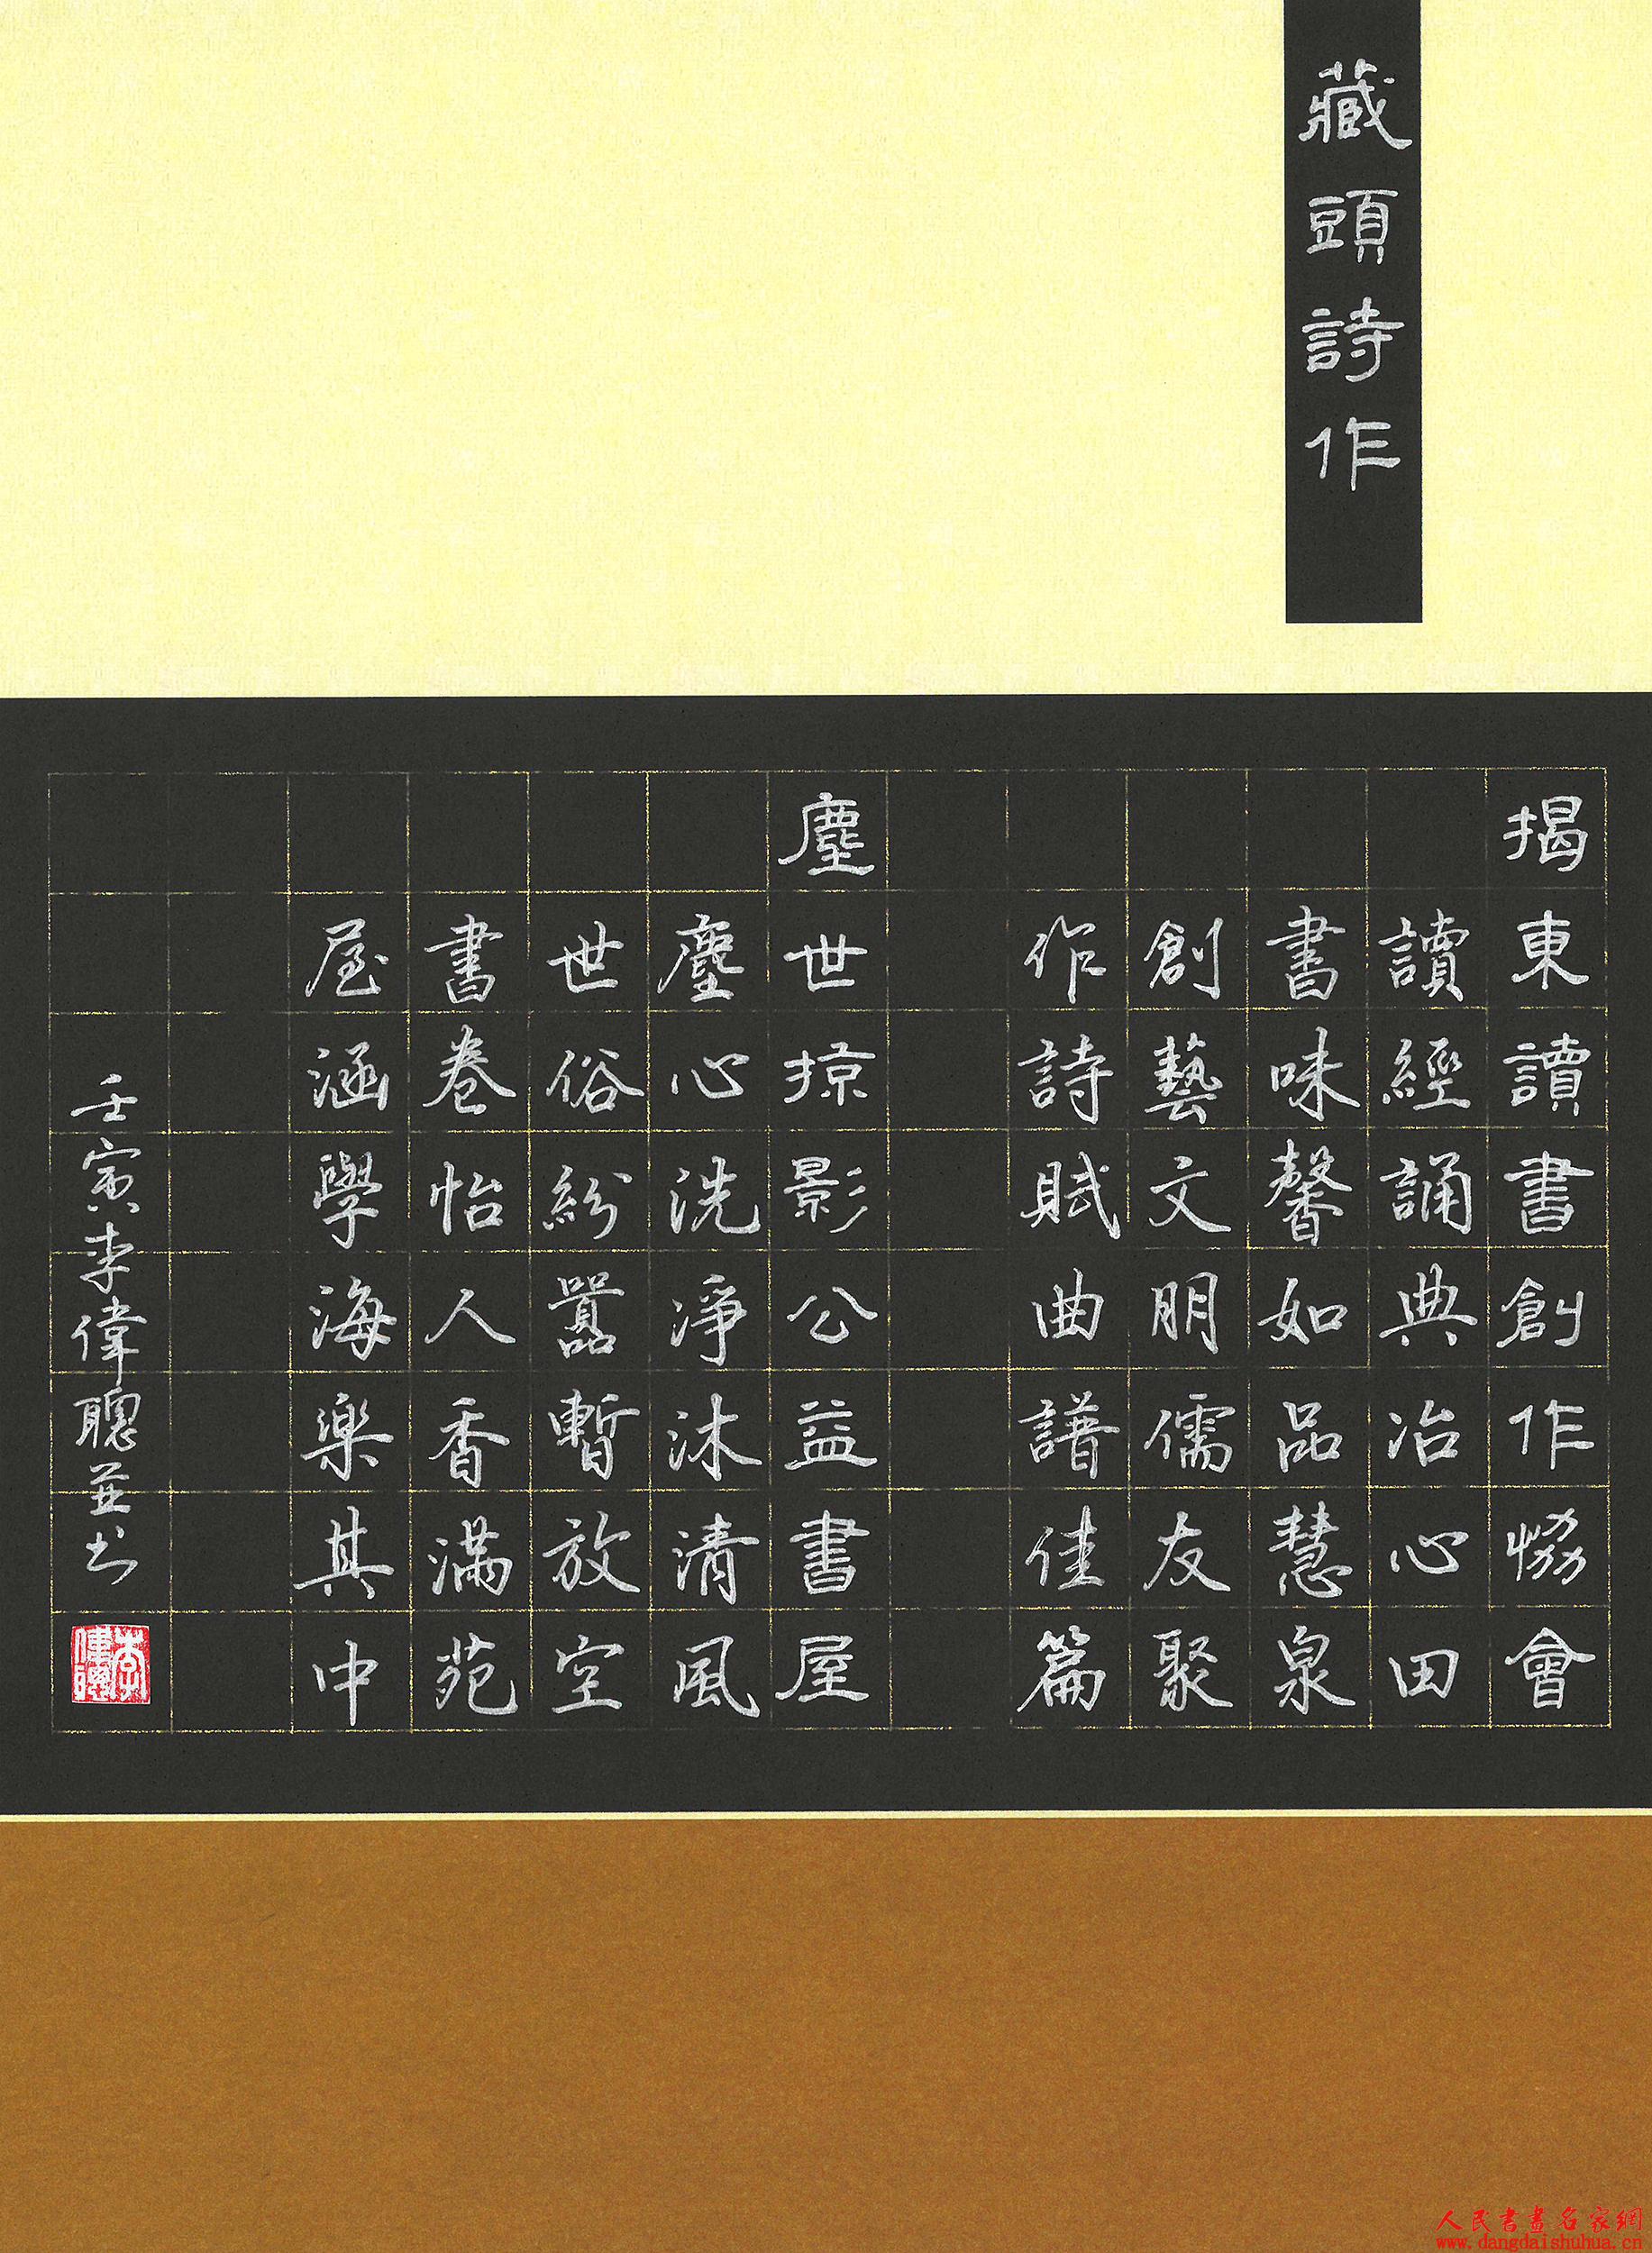 藏頭詩作
揭東讀書創作協會
讀經誦典冶心田
書味馨如品慧泉
創藝文朋儒友聚
作詩賦曲譜佳篇
塵世掠影公益書屋
塵心洗淨沐清風
世俗紛囂暫放空
書卷怡人香滿苑
屋涵學海樂其中
壬寅李偉聰並书
李偉聰
人民書畫名家網
www.dangdaishuhua.cn